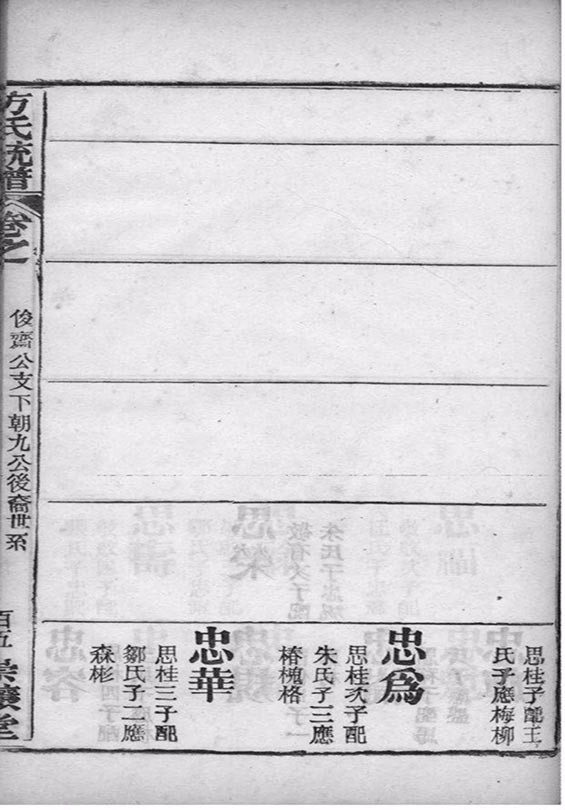 思桂子配王
氏子應梅柳
忠爲
思桂次子配
朱氏子三應
椿槐格
忠華
思桂三子配
鄒氏子二應
森彬
方氏統譜
卷之
俊齋公支下朝九公後裔世系
百五
堂